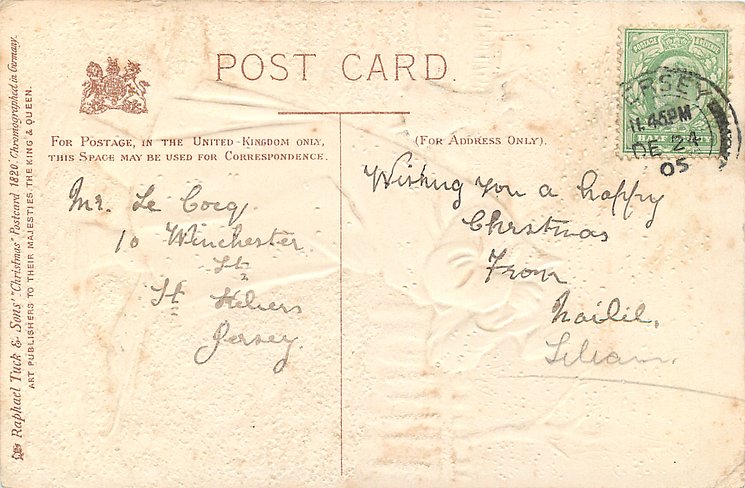 POST CARD.
FOR POSTAGE, IN THE UNITED-KINGDOM ONLY,
THIS SPACE MAY BE USED FOR CORRESPONDENCE.
(FOR ADDRESS ONLY).
Mr. Le Cocq.
10 Winchester
St
St Heliers
Jersey.
Wishing you a happy
Chrstmas
From
Lilian.
POSTAGE & REVENUE
HALF
JERSEY
11.45PM
DE 24
05
Raphael Tuck & Sons' "Christmas" Postcard 1820. Chromographed in Germany.
ART PUBLISHERS TO THEIR MAJESTIES THE KING & QUEEN.